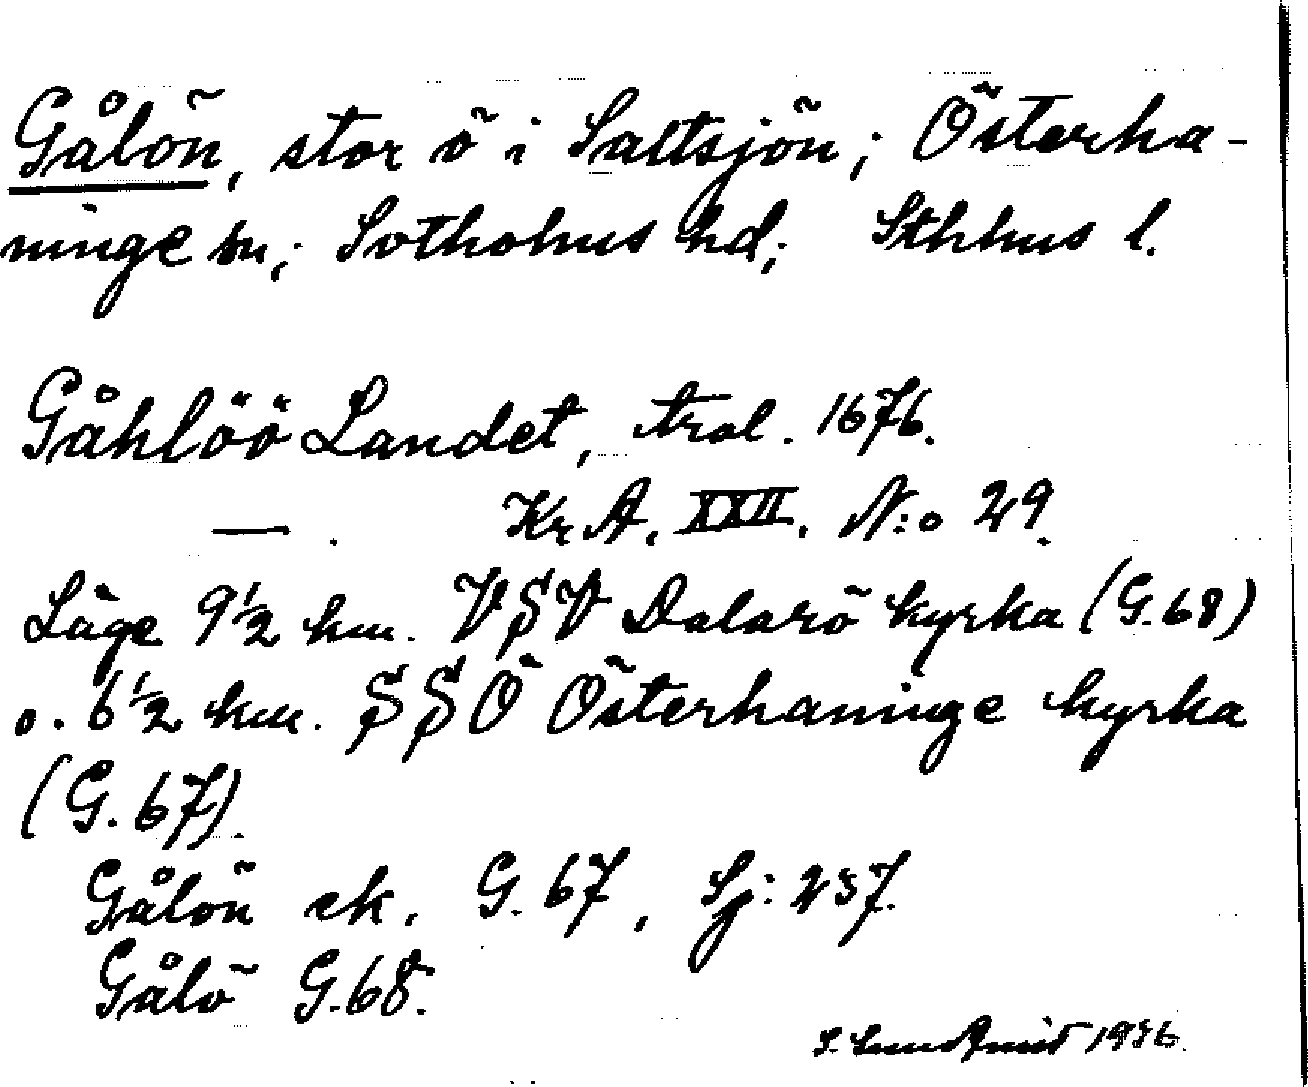 Gålön, stor ö i Saltsjön; Österha-
ninge sn; Sotholms hd; Sthlms l.
Gåhlöö Landet, tral. 1676.
— . Kr. A. XXII. N:o 29.
Läge 9½ km. VSV Dalarö kyrka (G.68)
o. 6½ km. SSÖ Österhaninge kyrka
(G. 67).
Gålön ek. G. 67, Sj: 237.
Gålö G.68.
S. Lundqvist 1936.